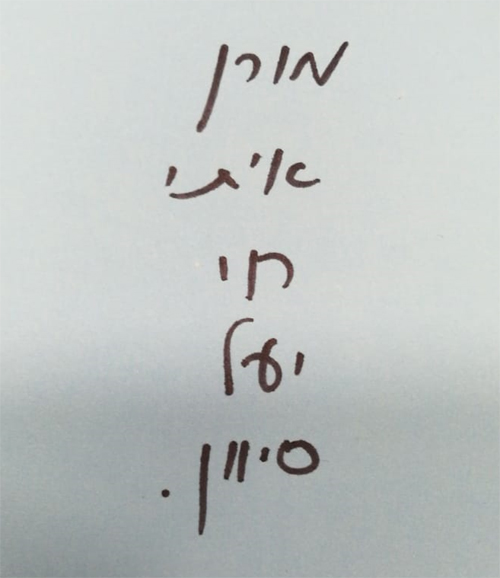 מורן
איתי
חי
יעל
סיוון.